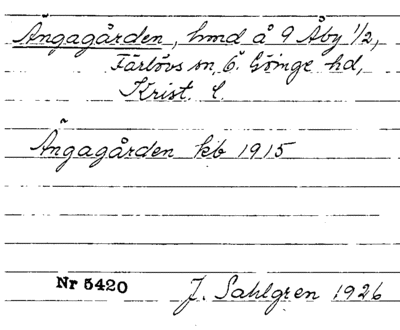 Ängagården, hmd å 9 Åby 1/2,
Färlövs sn, Ö. Göinge hd,
Krist. l.
Ängagården kb 1915
Nr 5420 J. Sahlgren 1926